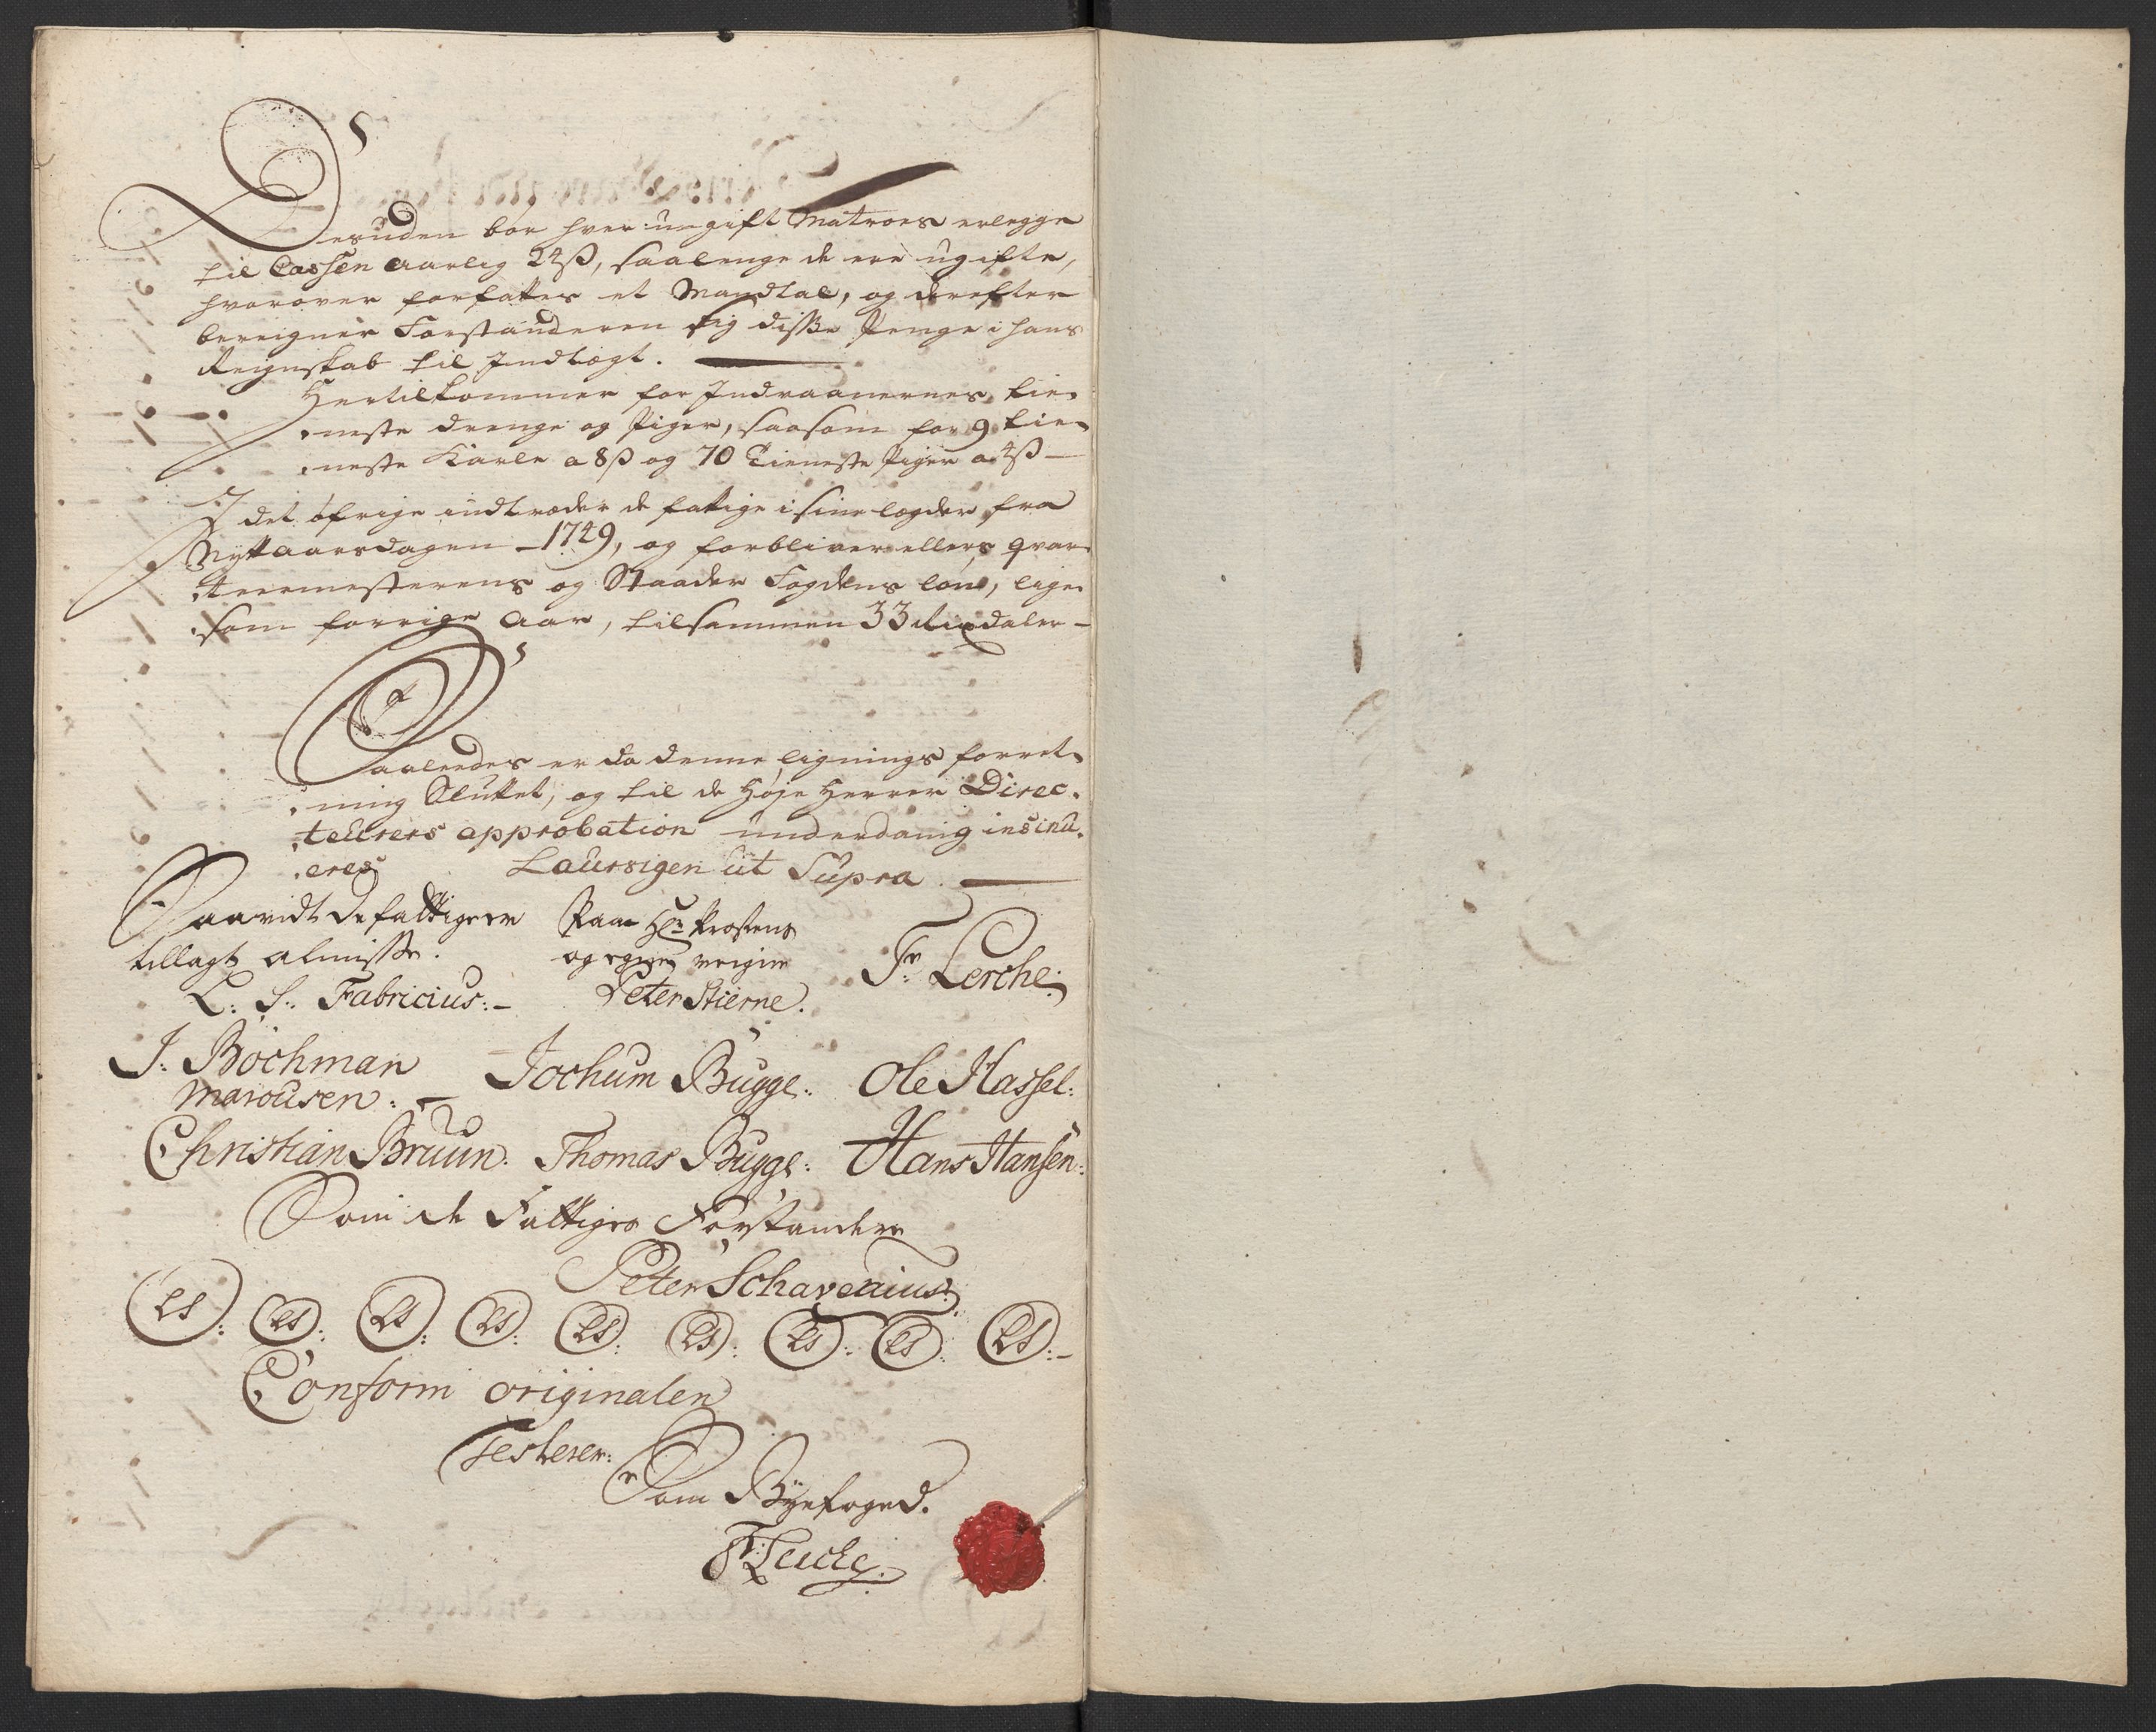 Desuden bør hver ungift Matroes erlegge
til Cassen aarlig 24ß, saalenge de ere ugifte,
hvorover forfattes et Mandtal, og derefter
bereigner Forstanderen sig disse Penge i hans
Reignskab til Indtægt.
Hertilkommer for Indvaanernes tie-
neste drenge og Piger, saasom for 9 tie-
neste Karle a 8ß og 70 Tieneste Piger a 4ß
I det øfrige indtræder de fattige i sine lægder fra
Nyttaarsdagen 1749, og forbliver ellers qvar-
teermesterens og Staader Fogdens løn, lige-
som forrige Aar, tilsammen 33 Rixdaler
Saaledes er da denne lignings forret-
ning Sluttet, og til de Høje Herrer Direc-
teurers approbation underdanig insinu-
eres Laurvigen ut Supra.
Saavidt de fattige er
tillagt almisse.
L: S: Fabricius:
Paa Hr Prostens
og egne veigne
Peter Stierne.
Fr: Lerche:
J: Bøchman
Marcusen:
Jochum Bugge: Ole Hassel:
Christian Bruun. Thomas Bugge: Hans Hansen:
Som de Fattiges Forstander
Peter Schavenius:
LS: LS: LS: LS: LS: LS: LS: LS: LS:
Conform originalen
Testerer:
Som Byefoged.
Fr: Lerche.